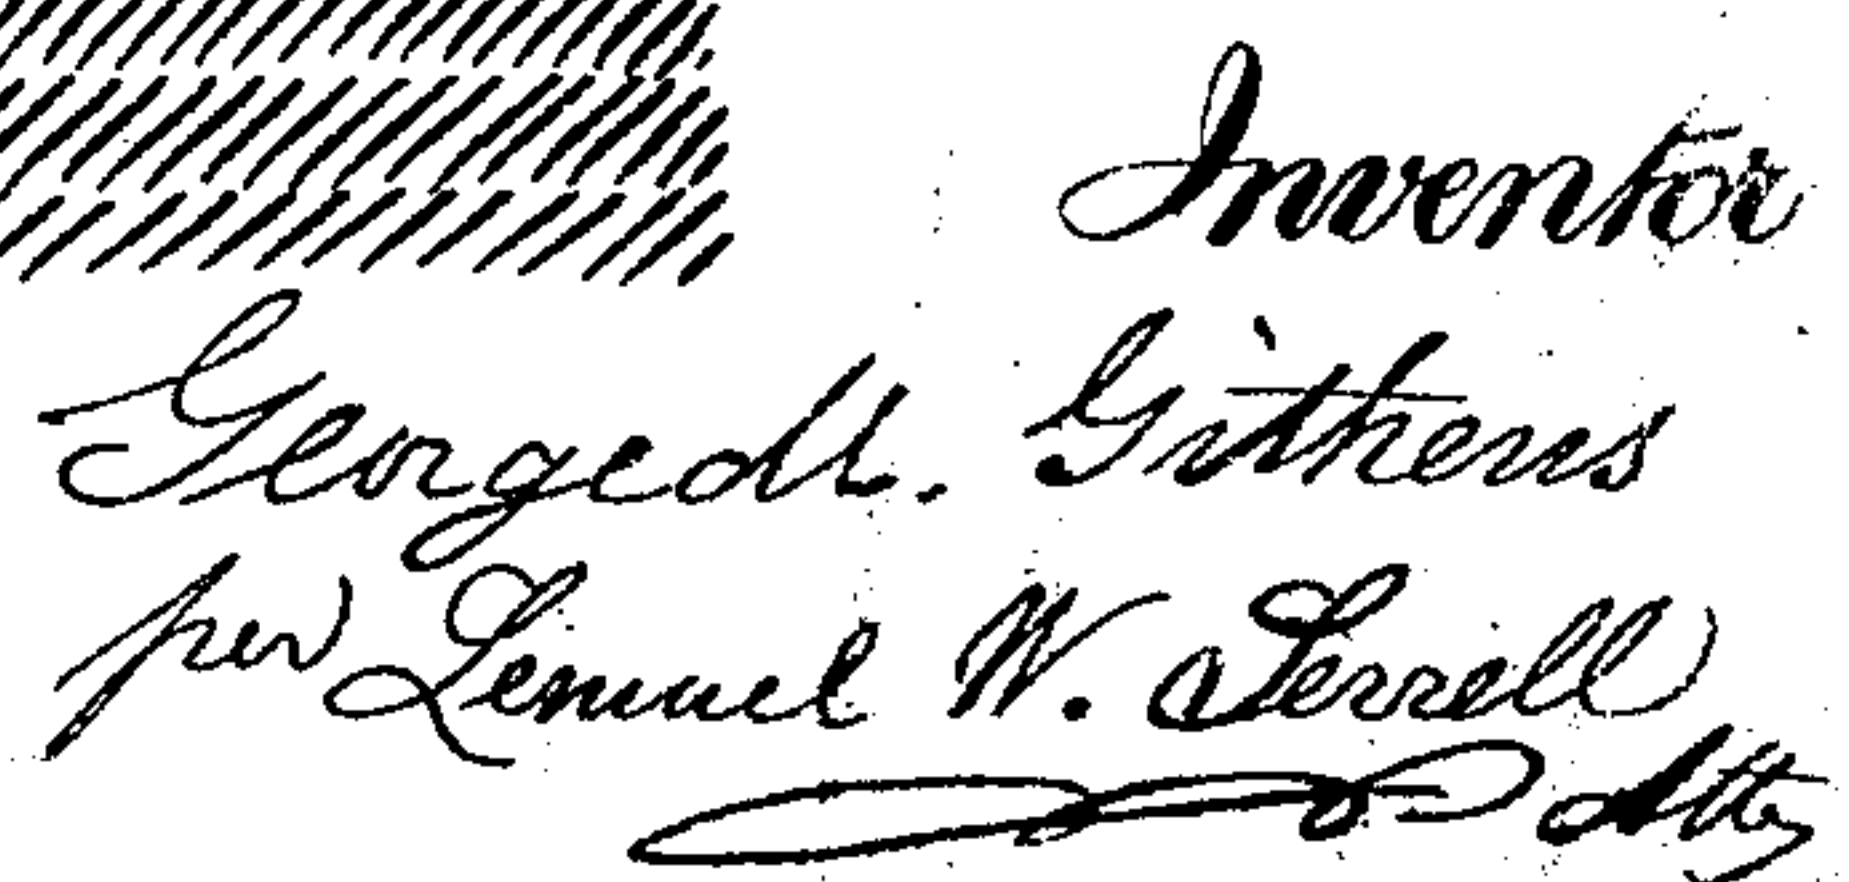 Inventor
George M. Githens
per Lemuel W. Serrell
Atty